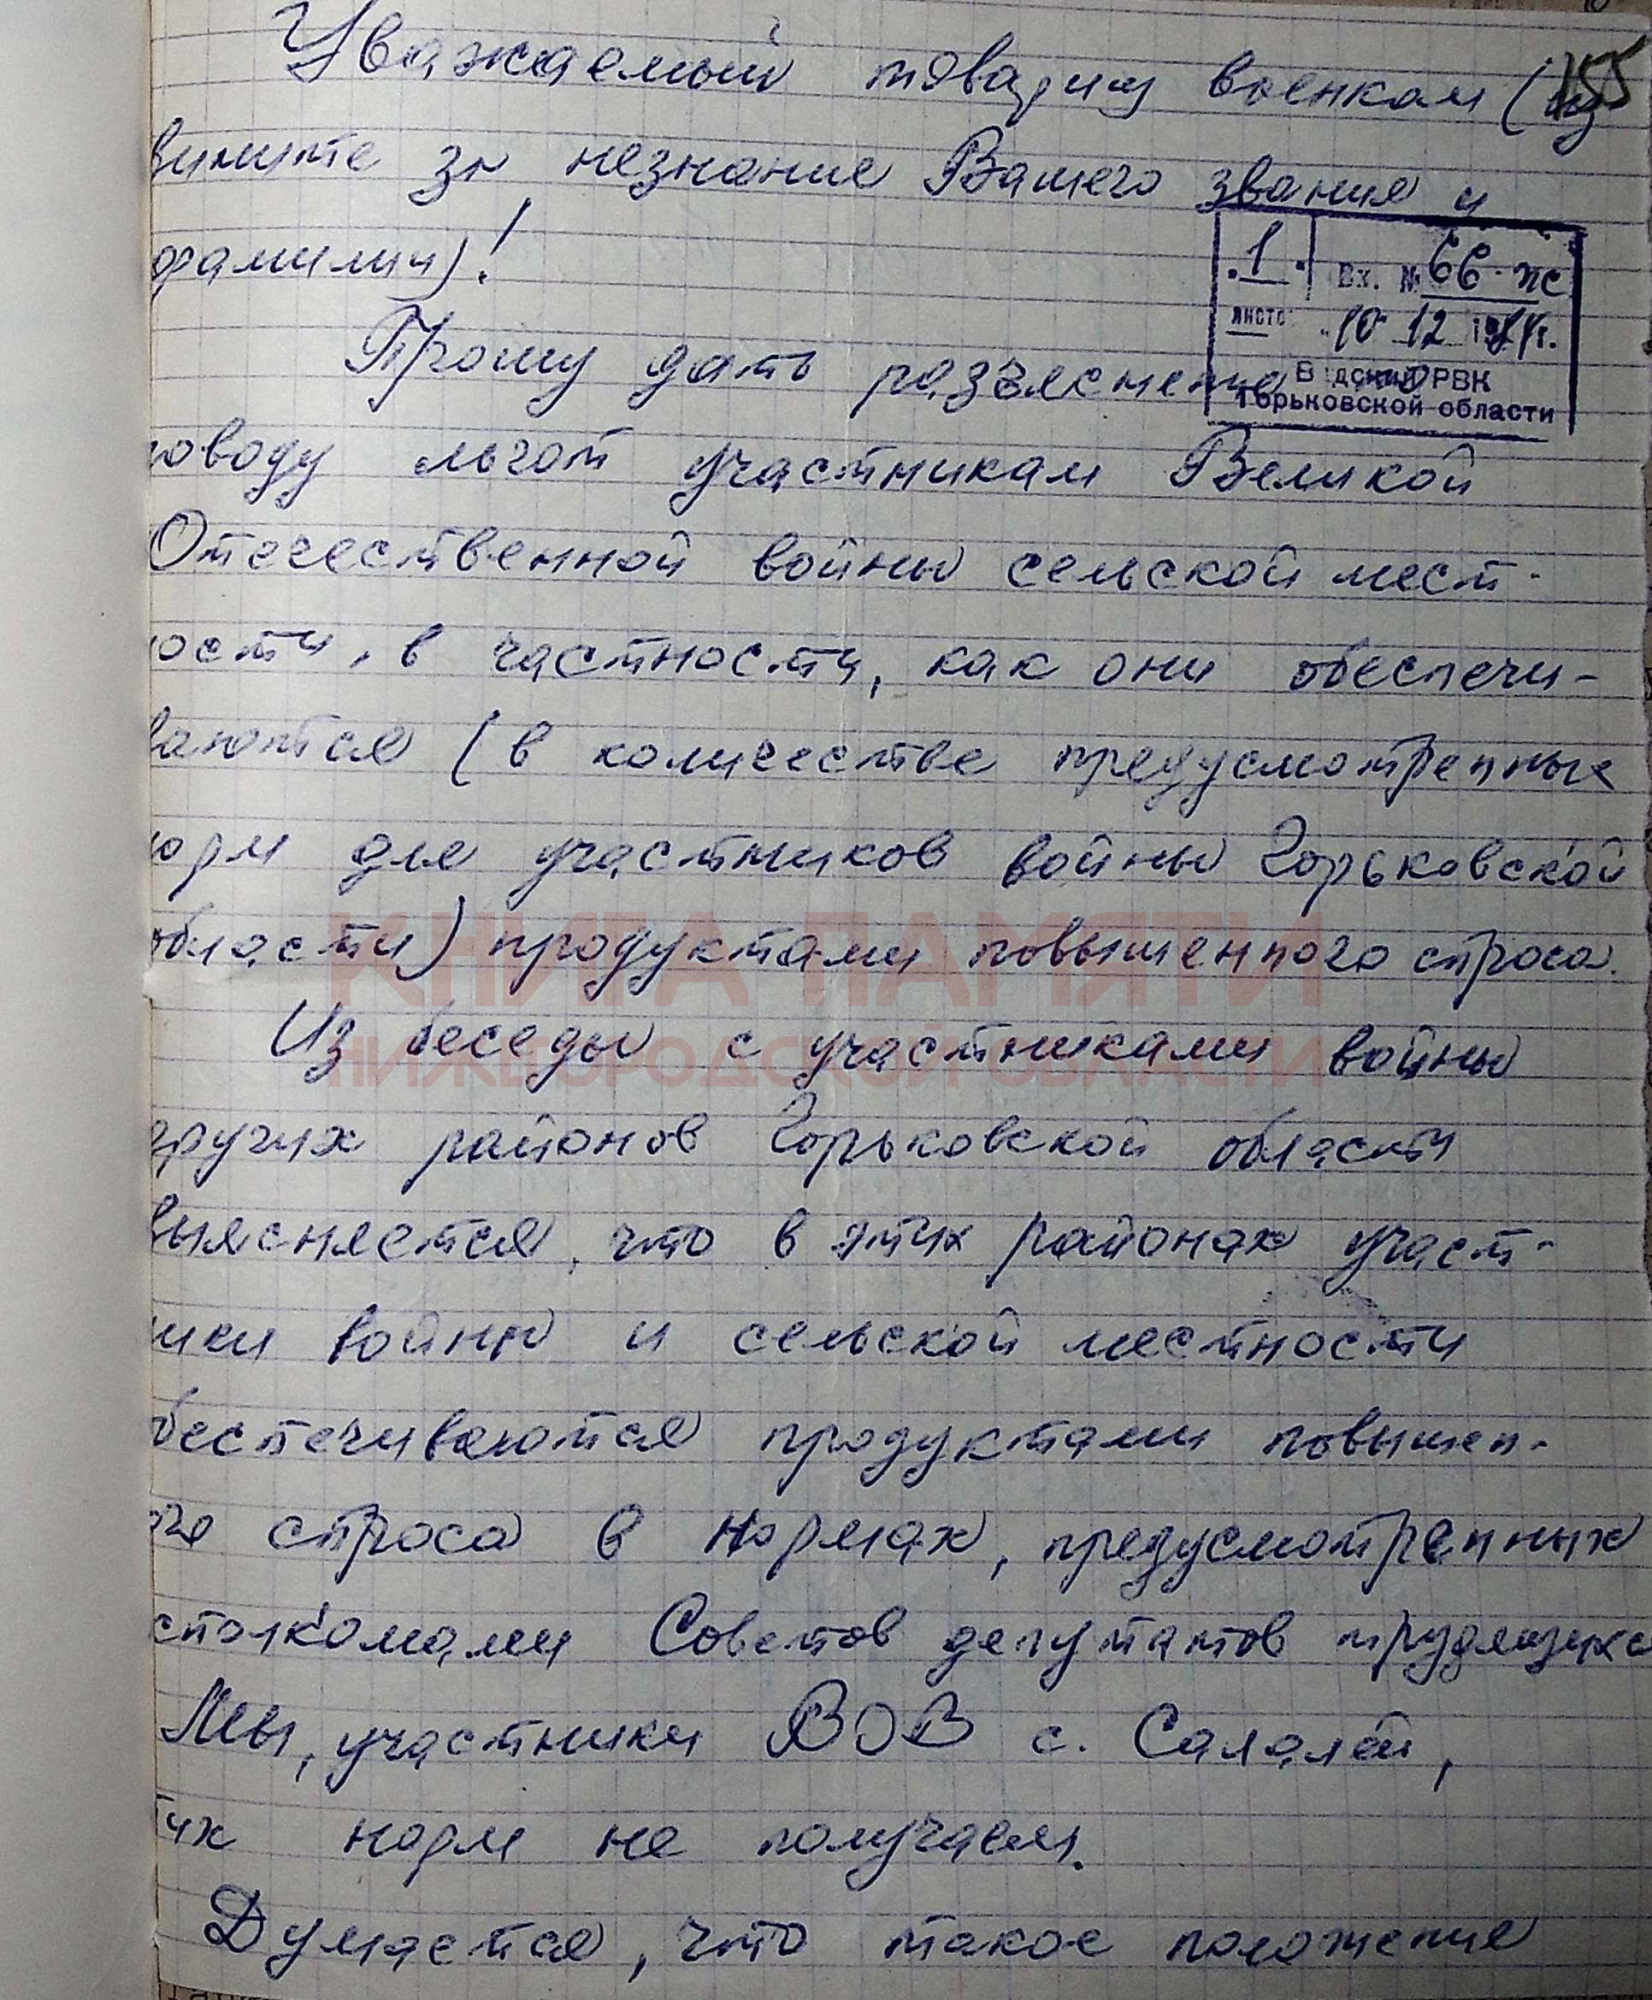 155
Уважаемый товарищ военком (из
вините за незнание Вашего звания и
фамилии)!
1 Вх. № 66-пс
листо 10 12
В дский РВК
Горьковской области
Прошу дать разъяснение по
поводу льгот участникам Великой
Отечественной войны сельской мест-
ности, в частности, как они обеспечи-
ваются (в количестве предусмотренных
норм для участников войны Горьковской
области) продуктами повышенного спроса.
КНИГА ПАМЯТИ
НИЖЕГОРОДСКОЙ ОБЛАСТИ
Из беседы с участниками войны
других районов Горьковской области
выясняется, что в этих районах участ-
ники войны и сельской местности
обеспечиваются продуктами повышен-
ого спроса в нормах, предусмотренных
исполкомами Советов депутатов трудящихся
Мы, участники ВОВ с. Салалей,
тих норм не получаем.
Думается, что такое положение